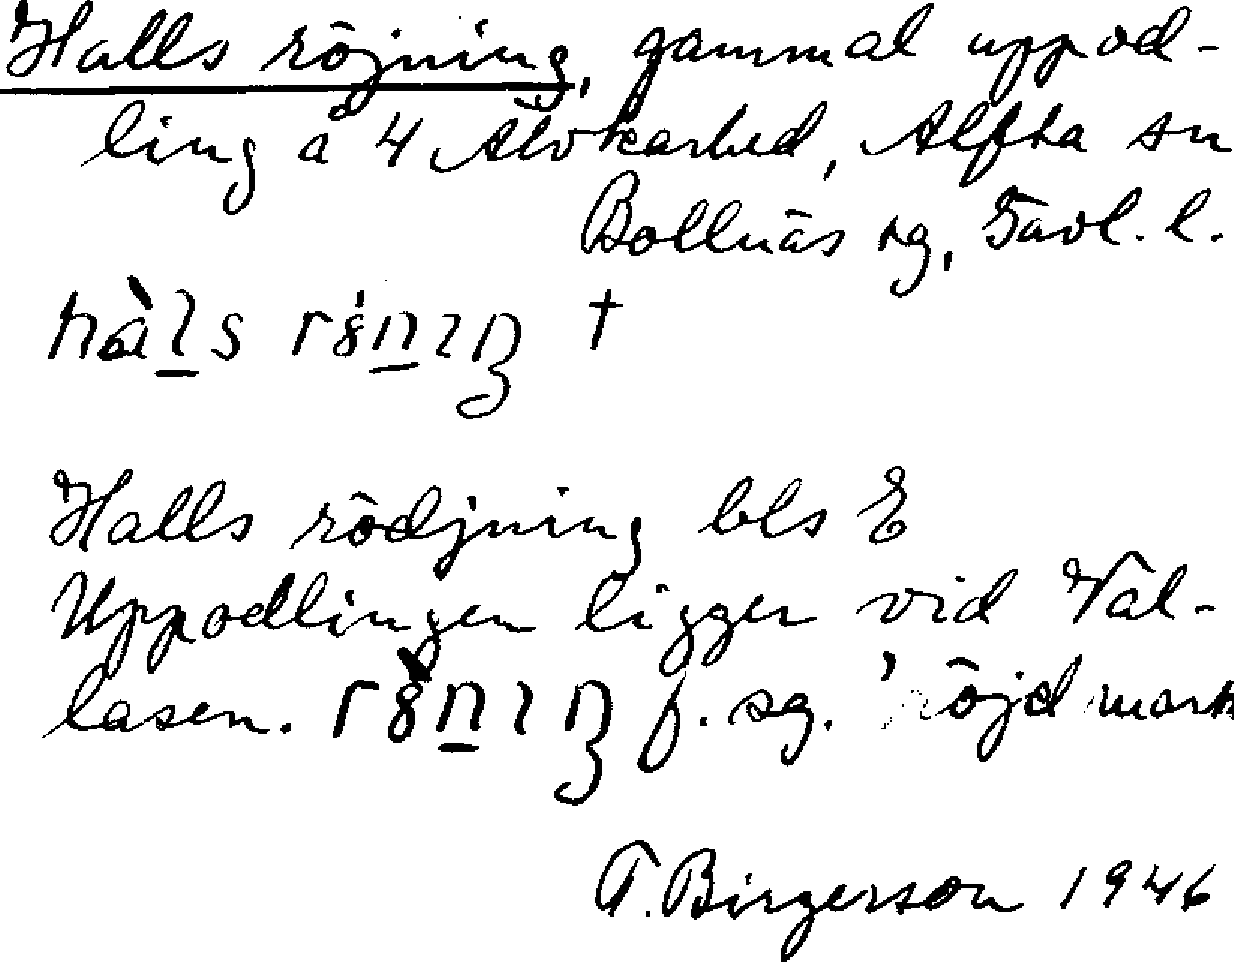 Halls röjning, gammal uppod-
ling å 4 Älvkarhed, Alfta sn
Bollnäs sg, Gävl. l.
hàl̠s rȣn̠ıŋ †
Halls rödjning bls E
Uppodlingen ligger vid Val-
lasen. rȣ̀n̠ıŋ f. sg. 'röjd mark
T. Birgerson 1946